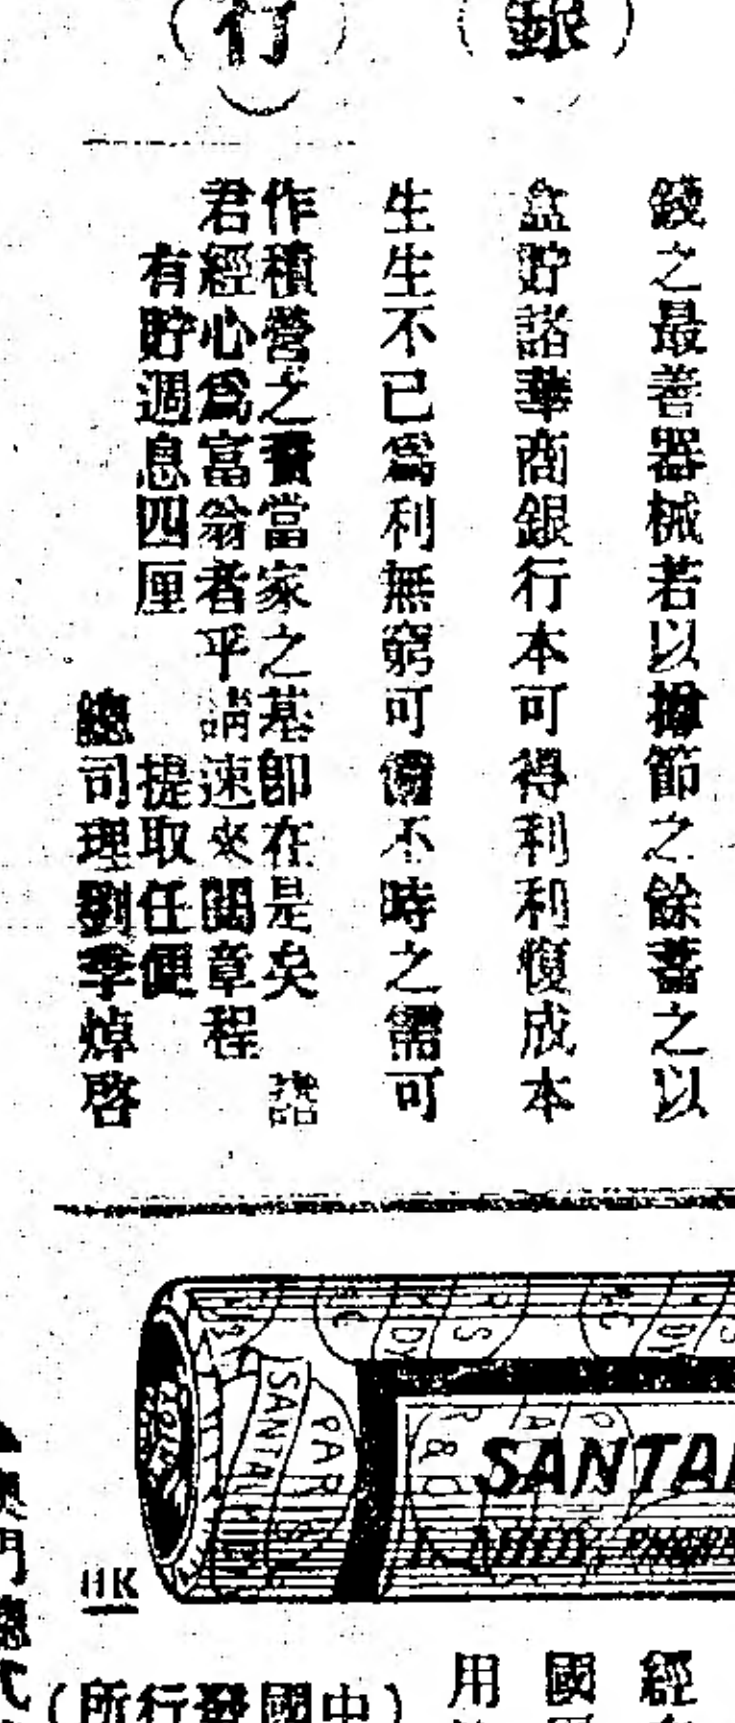 銀
行
錢之最善器械若以撙節之餘蓄之以
盒貯諸華商銀行本可得利利復成本
生生不已爲利無窮可備不時之需可
作積營之資當家之基即在是矣 諸
君經心爲富翁者乎請速來閱章程
有貯週息四厘 提取任便
總司理劉季焯啓
SANTAL
PARIS
SANTAL
HK
經
國
用
(所行發國中)
澳門總代